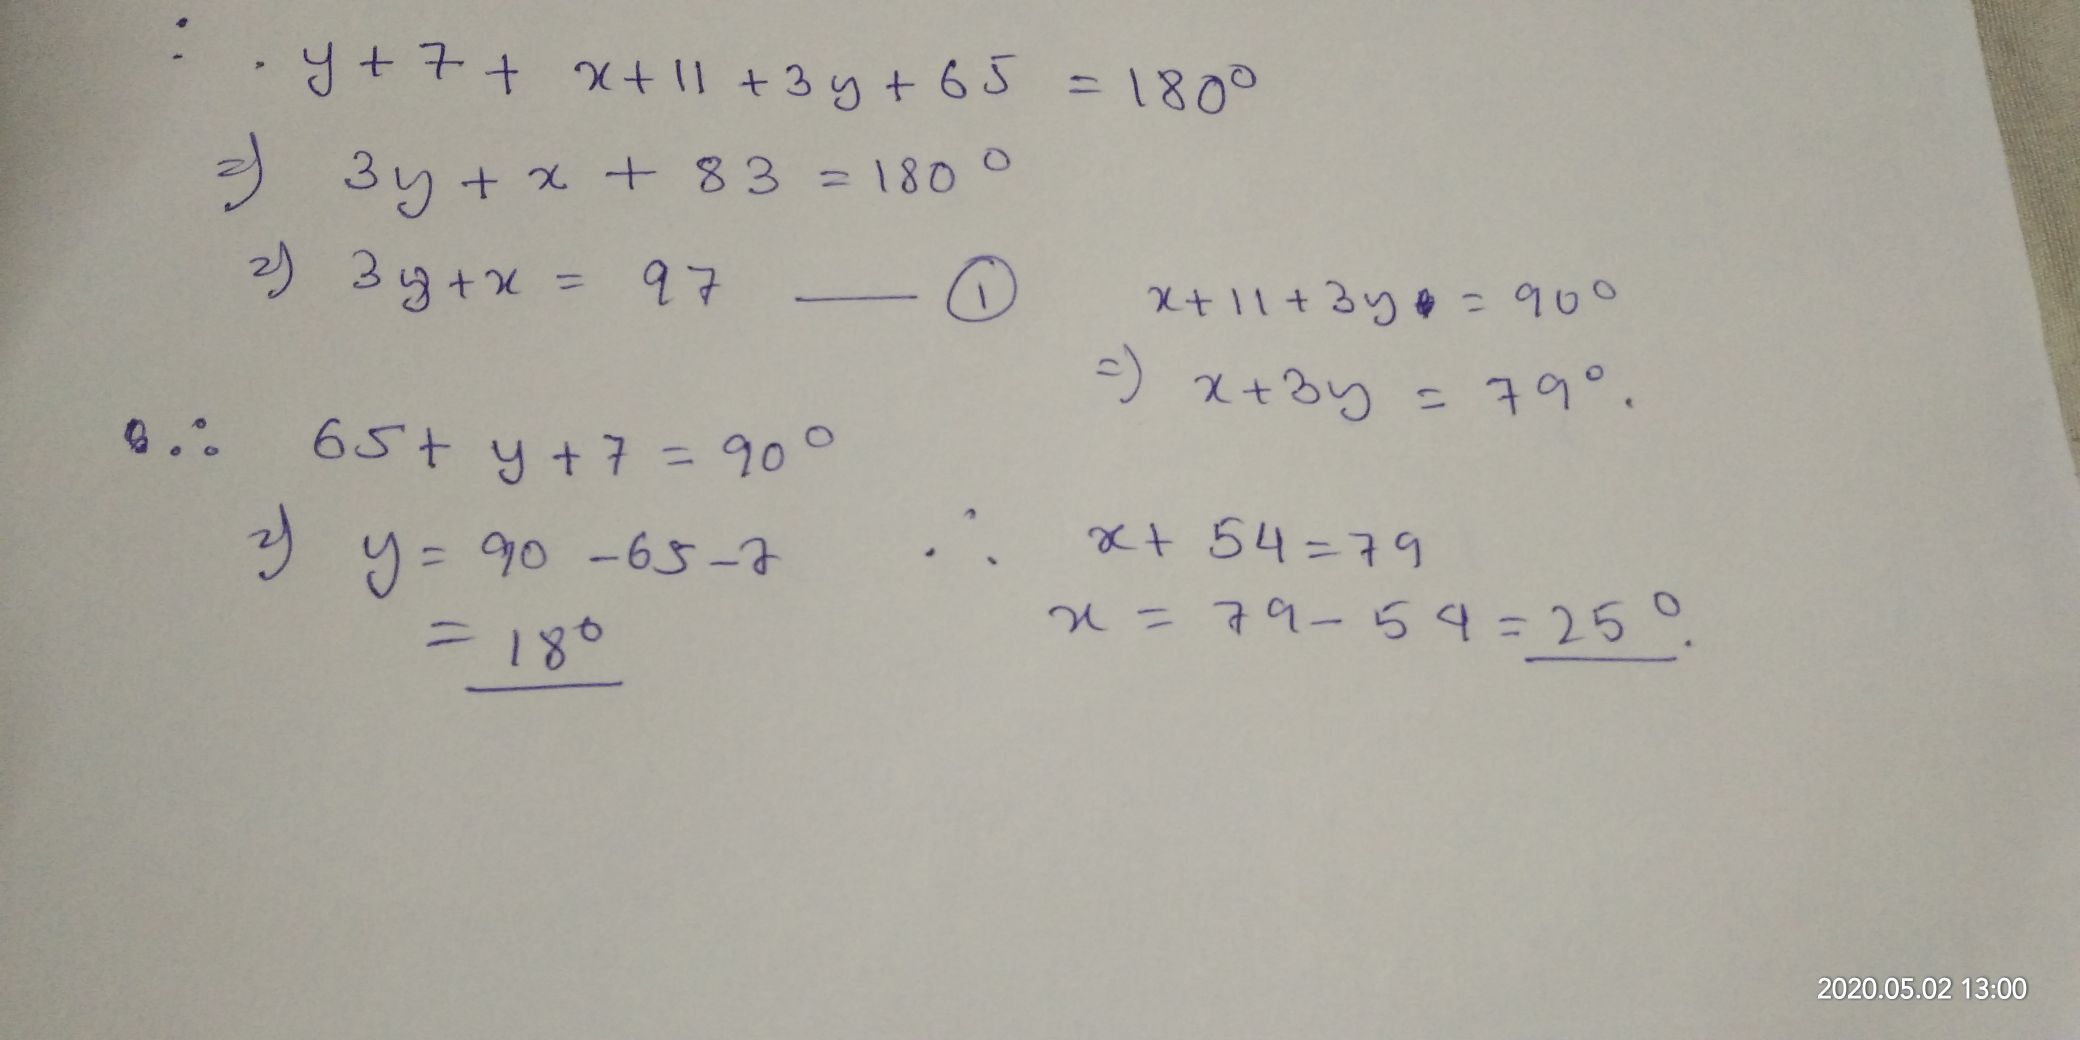 ∴ y + 7 + x + 11 + 3y + 65 = 180°
⇒ 3y + x + 83 = 180°
⇒ 3y + x = 97 —— ①
x + 11 + 3y = 90°
⇒ x + 3y = 79°.
∴ 65 + y + 7 = 90°
⇒ y = 90 - 65 - 7
= 18°
∴ x + 54 = 79
x = 79 - 54 = 25°.
2020.05.02 13:00